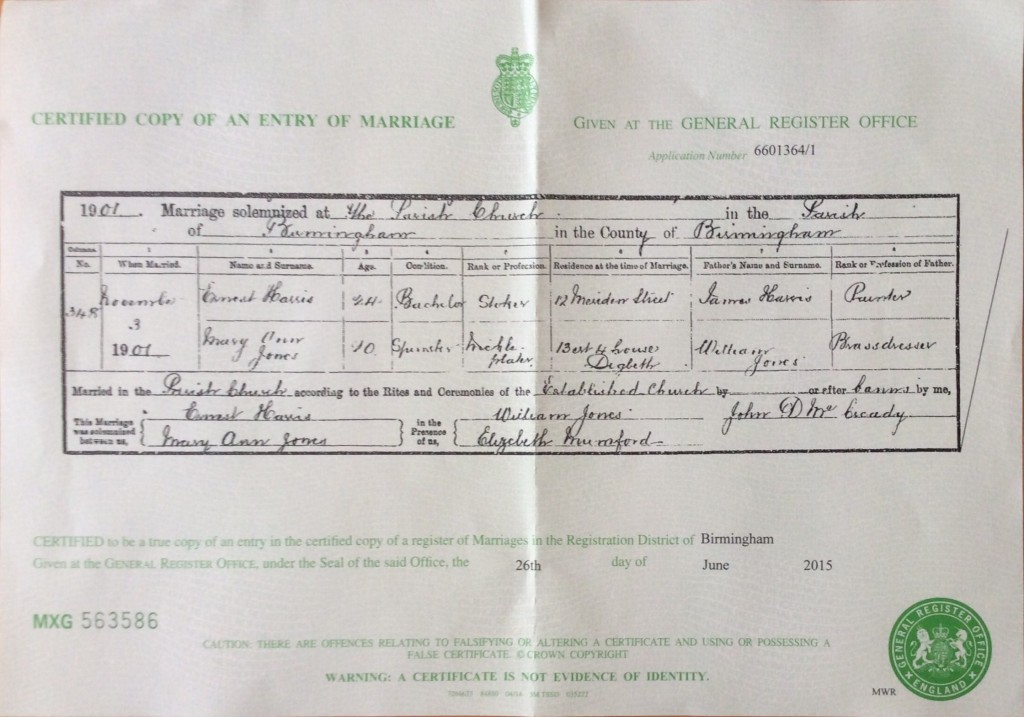 CERTIFIED COPY OF AN ENTRY OF MARRIAGE
GIVEN AT THE GENERAL REGISTER OFFICE
Application Number 6601364/1
1901. Marriage solemnized at the Parish Church in the Parish
of Birmingham in the County of Birmingham
Columns
No. When Married. Name and Surname. Age. Condition. Rank or Profession. Residence at the time of Marriage. Father's Name and Surname. Rank or Profession of Father.
348 November Ernest Harris 24 Bachelor Stoker 12 Meriden Street James Harris Painter
3
1901 Mary Ann Jones Spinster plater Digbeth William Jones Brassdresser
Married in the Parish Church according to the Rites and Ceremonies of the Established Church by or after banns by me,
This Marriage was solemnized between us, Ernest Harris in the Presence of us, William Jones John D Mc Cready
Mary Ann Jones Elizabeth Mumford
CERTIFIED to be a true copy of an entry in the certified copy of a register of Marriages in the Registration District of Birmingham
Given at the GENERAL REGISTER OFFICE, under the Seal of the said Office, the 26th day of June 2015
MXG 563586
CAUTION: THERE ARE OFFENCES RELATING TO FALSIFYING OR ALTERING A CERTIFICATE AND USING OR POSSESSING A
FALSE CERTIFICATE. © CROWN COPYRIGHT
WARNING: A CERTIFICATE IS NOT EVIDENCE OF IDENTITY.
GENERAL REGISTER OFFICE
ENGLAND
MWR